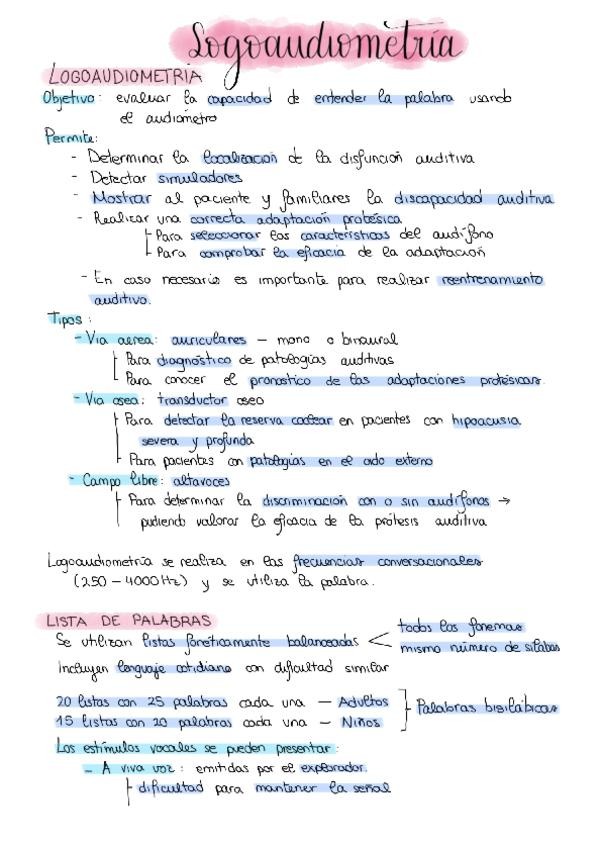 Logoaudiometría
LOGOAUDIOMETRIA
Objetivo: evaluar la capacidad de entender la palabra usando
el audiómetro
Permite:
- Determinar la localización de la disfunción auditiva
- Detectar simuladores
- Mostrar al paciente y familiares la discapacidad auditiva
- Realizar una correcta adaptación protésica
Para seleccionar las características del audífono
Para comprobar la eficacia de la adaptación
- En caso necesario es importante para realizar reentrenamiento
auditivo.
Tipos:
- Via aerea: auriculares - mono o binaural
Para diagnóstico de patologías auditivas
Para conocer el pronostico de las adaptaciones protésicas.
- Via osea: transductor oseo
Para detectar la reserva coclear en pacientes con hipoacusia
severa y profunda
Para pacientes con patologías en el oido externo
- Campo libre: altavoces
Para determinar la discriminación con o sin audífonos →
pudiendo valorar la eficacia de la prótesis auditiva
Logoaudiometría se realiza en las frecuencias conversacionales
(250 - 4000 Hz) y se utiliza la palabra.
LISTA DE PALABRAS
Se utilizan listas fonéticamente balanceadas < todos los fonemas
mismo número de sílabas
Incluyen lenguaje cotidiano con dificultad similar
20 listas con 25 palabras cada una - Adultos
15 listas con 20 palabras cada una - Niños
Palabras bisilábicas
Los estímulos vocales se pueden presentar:
- A viva voz: emitidas por el explorador.
dificultad para mantener la señal